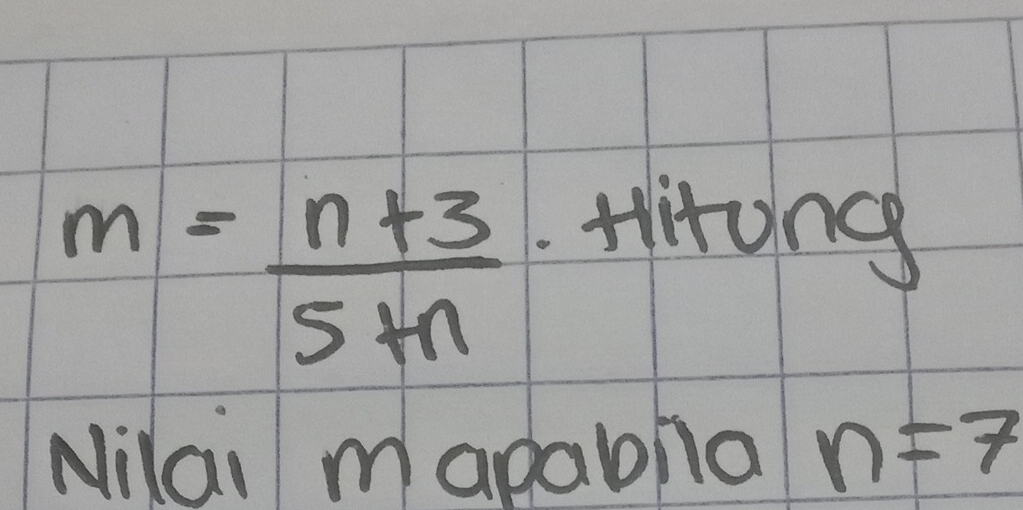 m = n+3 / 5+n . Hitung
Nilai m apabila n=7